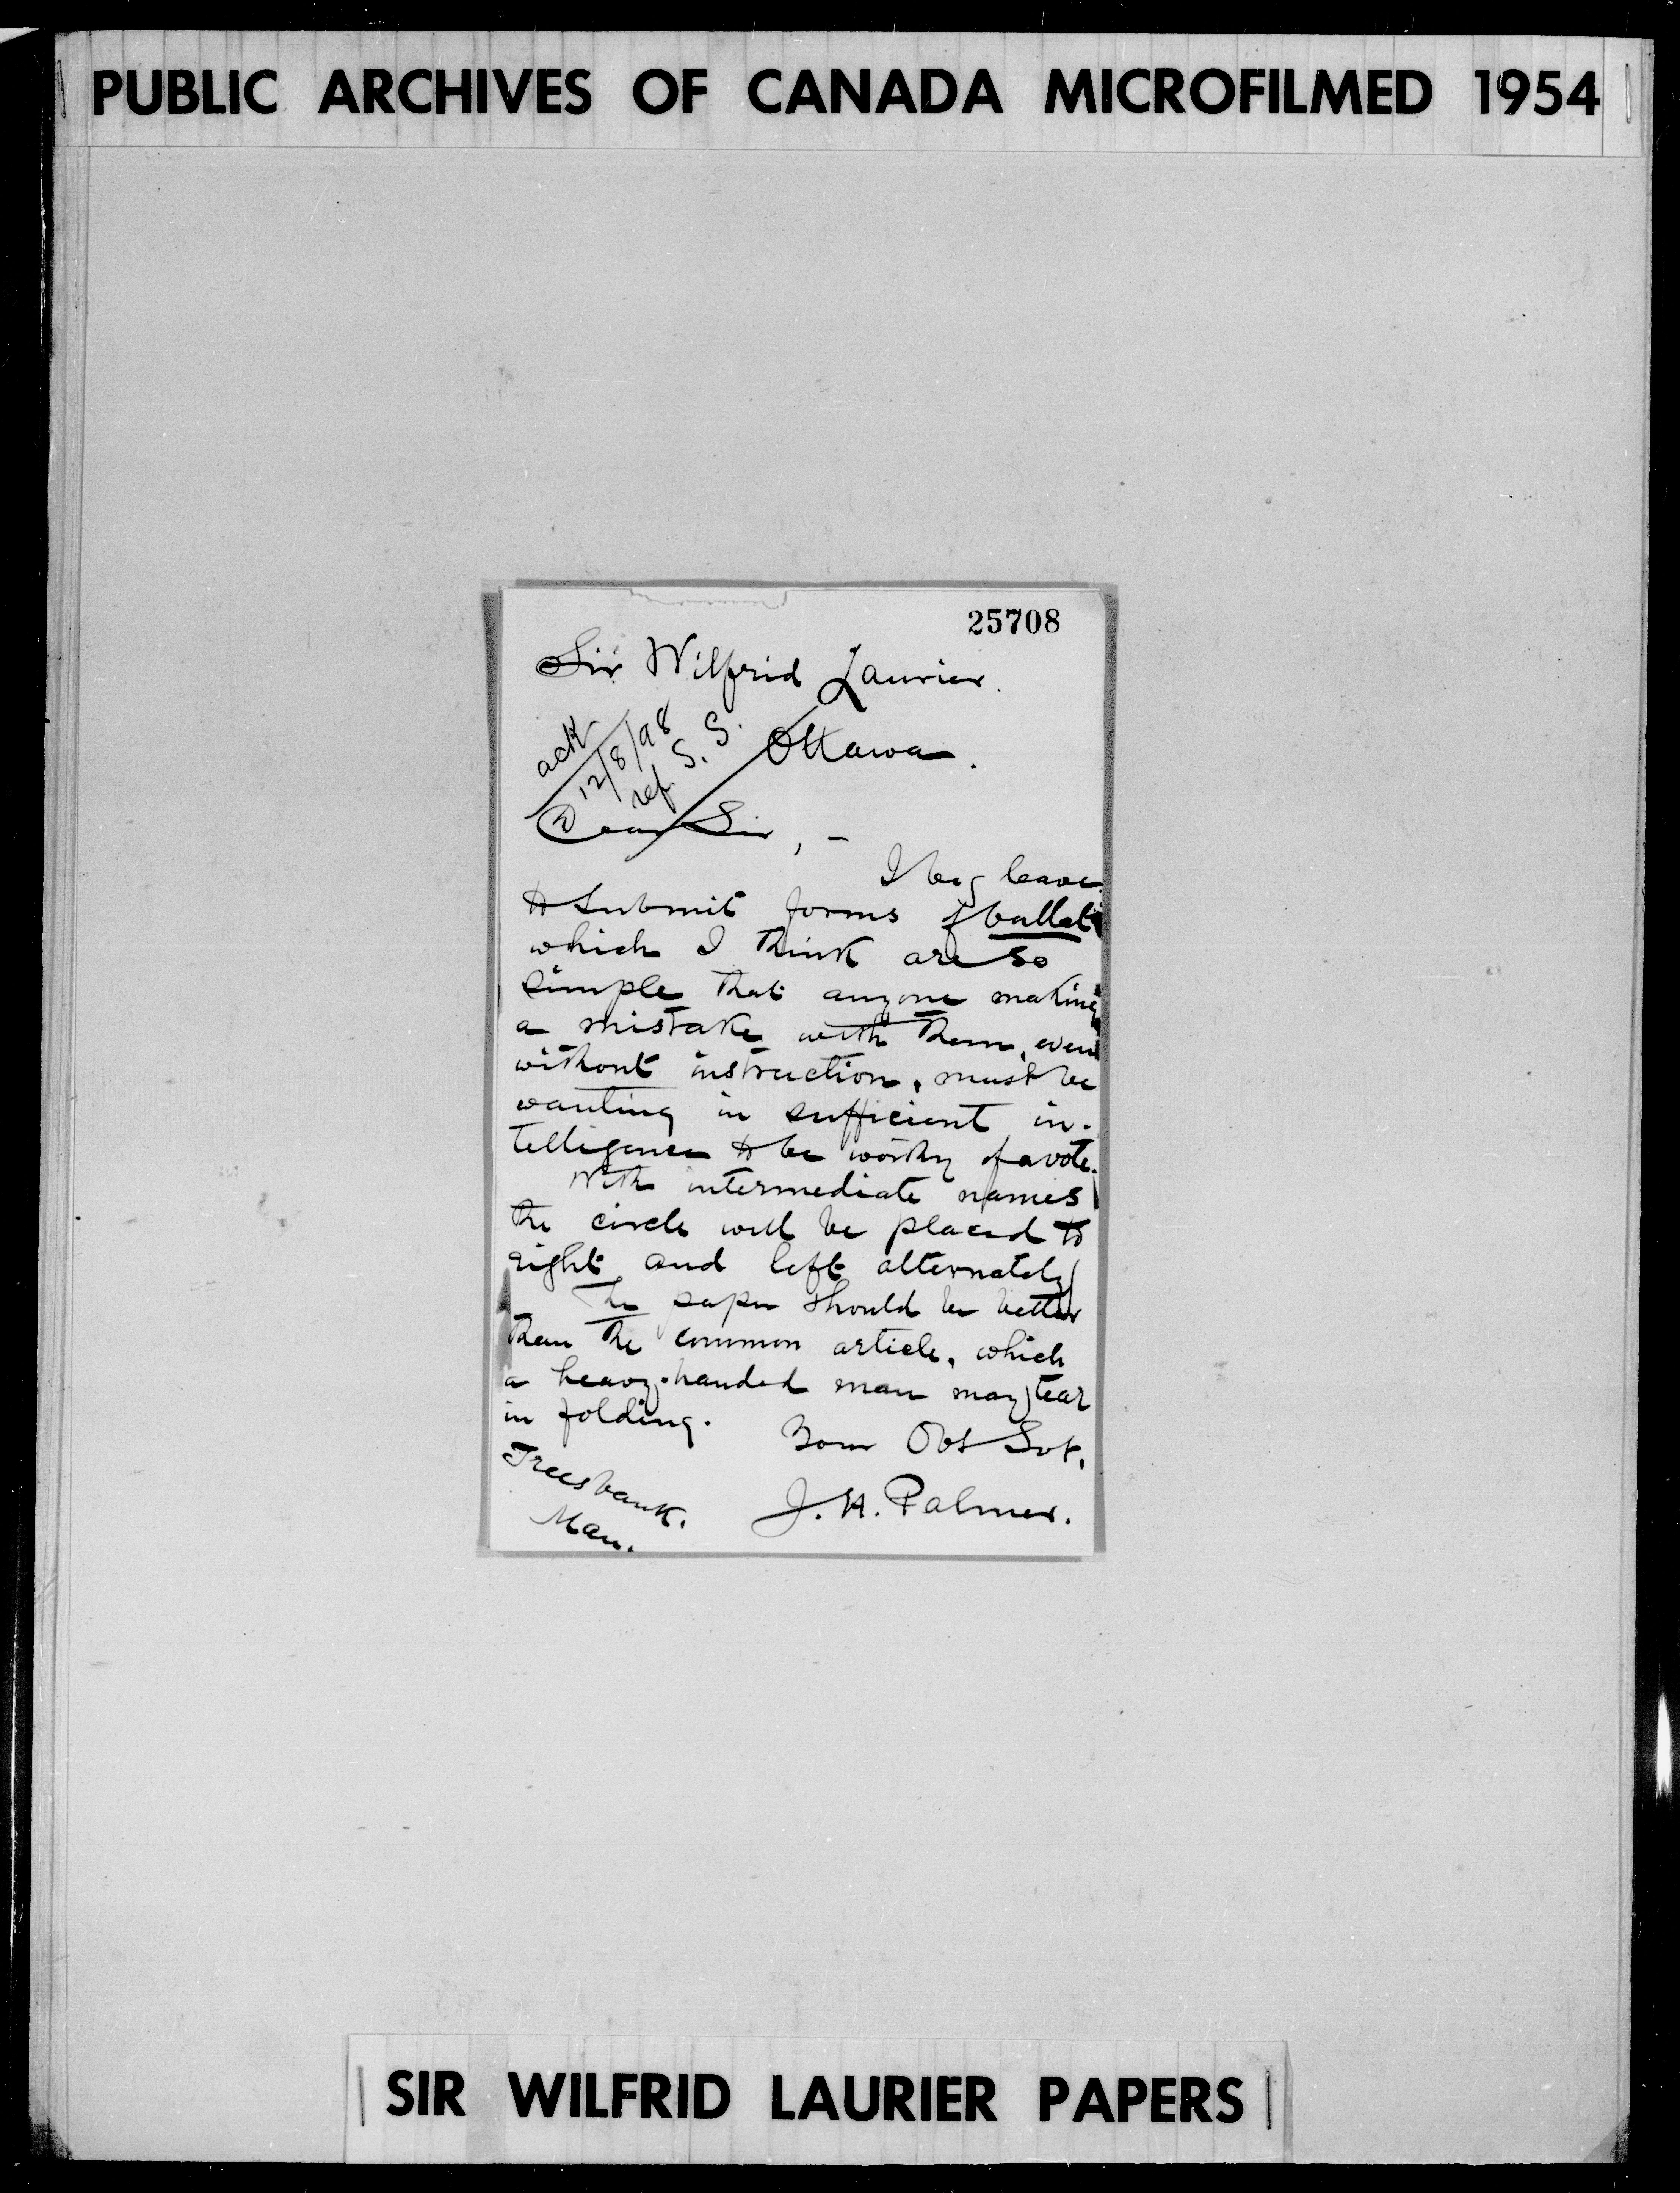 PUBLIC ARCHIVES OF CANADA MICROFILMED 1954
25708
Sir Wilfrid Laurier.
Ottawa.
ack
12/8/98
ref. S. S.
Dear Sir, -
I beg leave
to submit forms of ballot
which I think are so
simple that anyone making
a mistake with them, even
without instruction, must be
wanting in sufficient in-
telligence to be worthy of a vote.
With intermediate names
the circle will be placed to
right and left alternately
The paper should be better
than the common article, which
a heavy-handed man may tear
in folding.
Your Obt Svt,
J. H. Palmer.
Treesbank.
Man.
SIR WILFRID LAURIER PAPERS